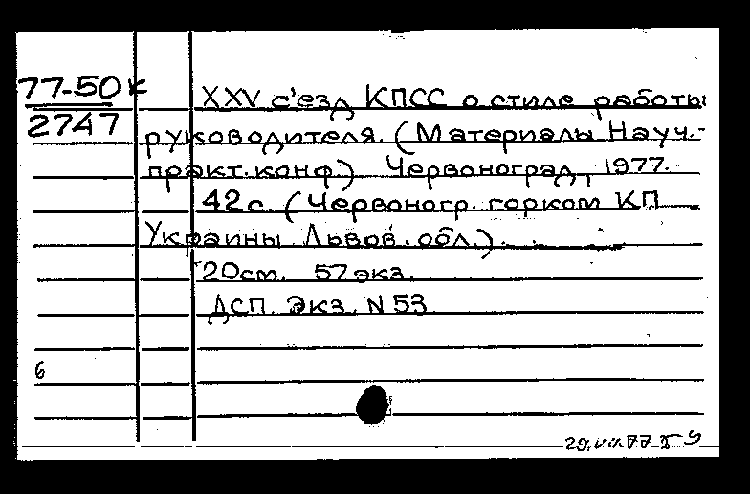 77-50к
2747
XXV с'езд КПСС о стиле работы
руководителя. (Материалы Науч.-
практ. конф.) Червоноград, 1977.
42 с. (Червоногр. горком КП
Украины Львов. обл.).
20 см. 57 экз.
ДСП. Экз. N 53
6
29.VII.77